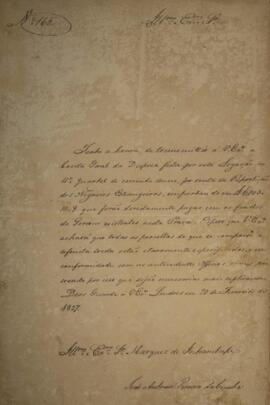 Nº 162
Illmo. Exmo. Sr.
Tenho a honra de transmittir a V. Exa. a
Conta Geral da Despeza feita por esta Legação no
4º Quartel do corrente anno, por conta da Repartição
dos Negocios Estrangeiros,
que forão devidamente pagas com os fundos
do Governo existentes nesta Praça. Espero que V. Exa.
achará que todas as parcellas de que se compoem a
referida Conta estão claramente especificadas, e em
conformidade com os antecedentes Officios,
que sejão necessarias mais explicações.
Deos Guarde a V. Exa. Londres em 20 de Fevereiro de
1827.
Illmo. Exmo. Sr. Marquez de Inhambupe
José Antonio Pereira da Cunha